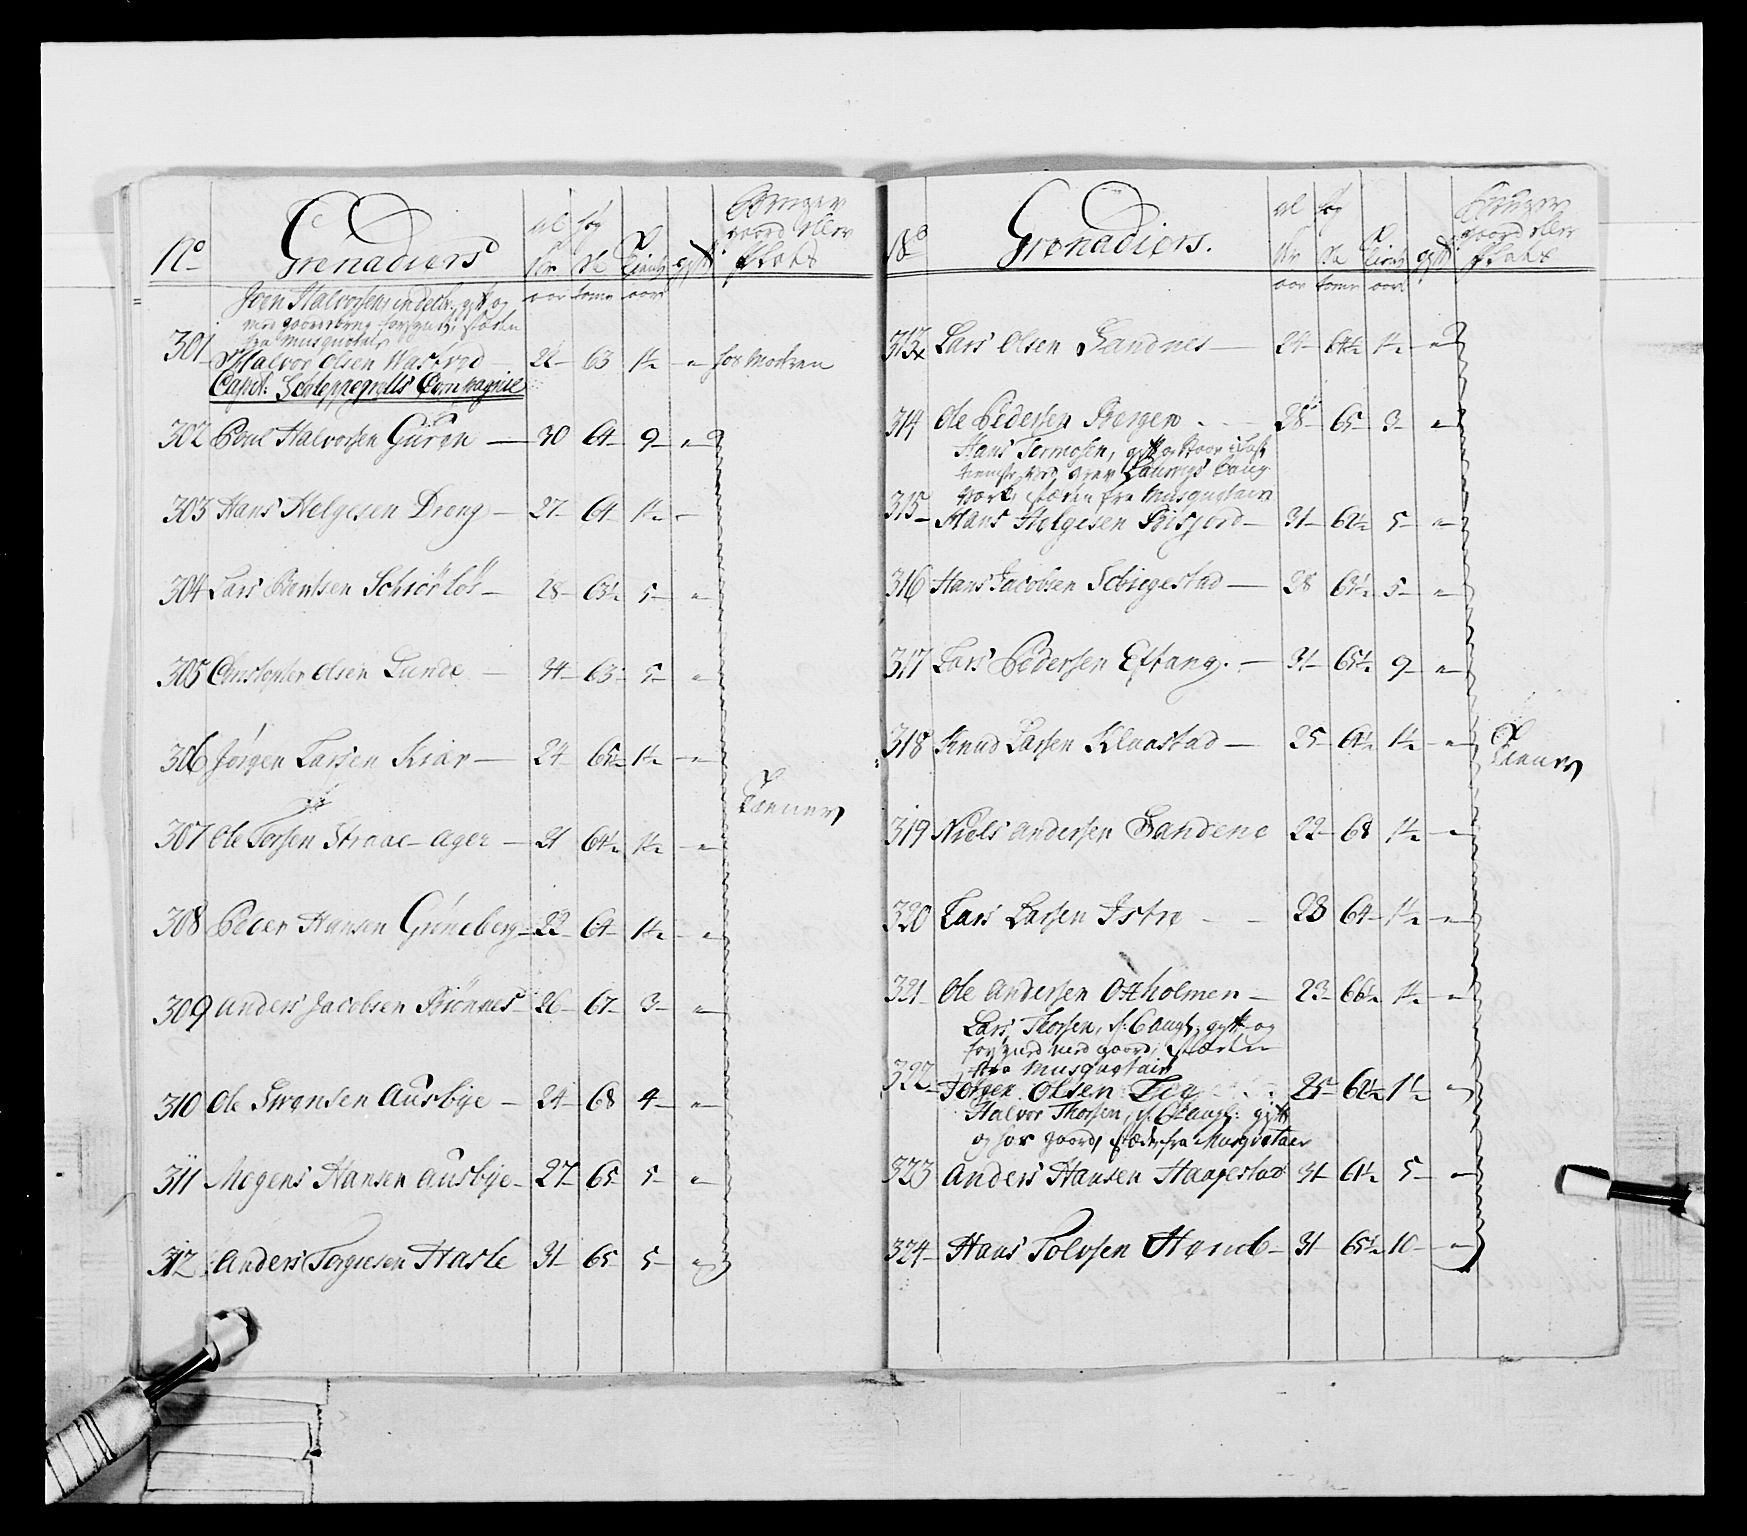 No
Grenadiers
al
der
aar
høy
de
tomr
tient
aar
gyft
Bruger
gaard eller
Plats
Joen Halvorsen, gyft og
med forsynt, steden
fra Musquoter
301 Halvor Olsen 21 63 1½ " for Modren
Capt: Schleppegrells Compagnie
302 Poul Halvorsen Guren — 30 64 9 "
303 Hans Helgesen Dreng — 27 64 1½ "
304 Lars Bentsen Schiørløs — 28 63½ 5 "
305 Christopher Olsen Lunde — 34 63 5 "
306 Jørgen Larsen Kiær — 24 65½ 1½ "
Tienner
307 Ole Torsen Straae-ager — 21 64½ 1½ "
308 Peder Hansen Grøneberg 22 64 1½ "
309 Anders Jacobsen Biønnes 26 67 3 "
310 Ole Svensen Ausbye — 24 68 4 "
311 Mogens Hansen Ausbye 27 65 5 "
312 Anders Torgiesen Hasle 31 65 5 "
No
Grenadiers.
al
der
aar
høy
de
tomr
tient
aar
gyft
Bruger
gaard eller
Plats
313 Lars Olsen Sandnes — 24 64½ 1½ "
314 Ole Pedersen Bergen 28 65 3 "
Hans Termosen, gyft og
Laurvigs Laug
steden fra Musquotair
315 Hans Helgesen — 31 62½ 5 "
316 Hans Jacobsen Schiegestad — 28 63½ 5 "
317 Lars Pedersen Eftang. — 31 65½ 9 "
318 Knud Larsen Klaastad — 25 64½ 1½ "
Tienner
319 Niels Andersen Sandene 22 68 1½ "
320 Lars Larsen Istre 28 64 1½ "
321 Ole Andersen Oxholmen — 23 66½ 1½ "
Lars Thorsen, gyft og
forsyned med gaard, steden
fra Musquotair
322 Jørgen Olsen Lie 25 62½ 1½ "
Halvor Thorsen, gyft
og har gaard, steden fra Musquotair
323 Anders Hansen Haagestad 31 64½ 5 "
324 Hans Tolvsen 31 65½ 10 "